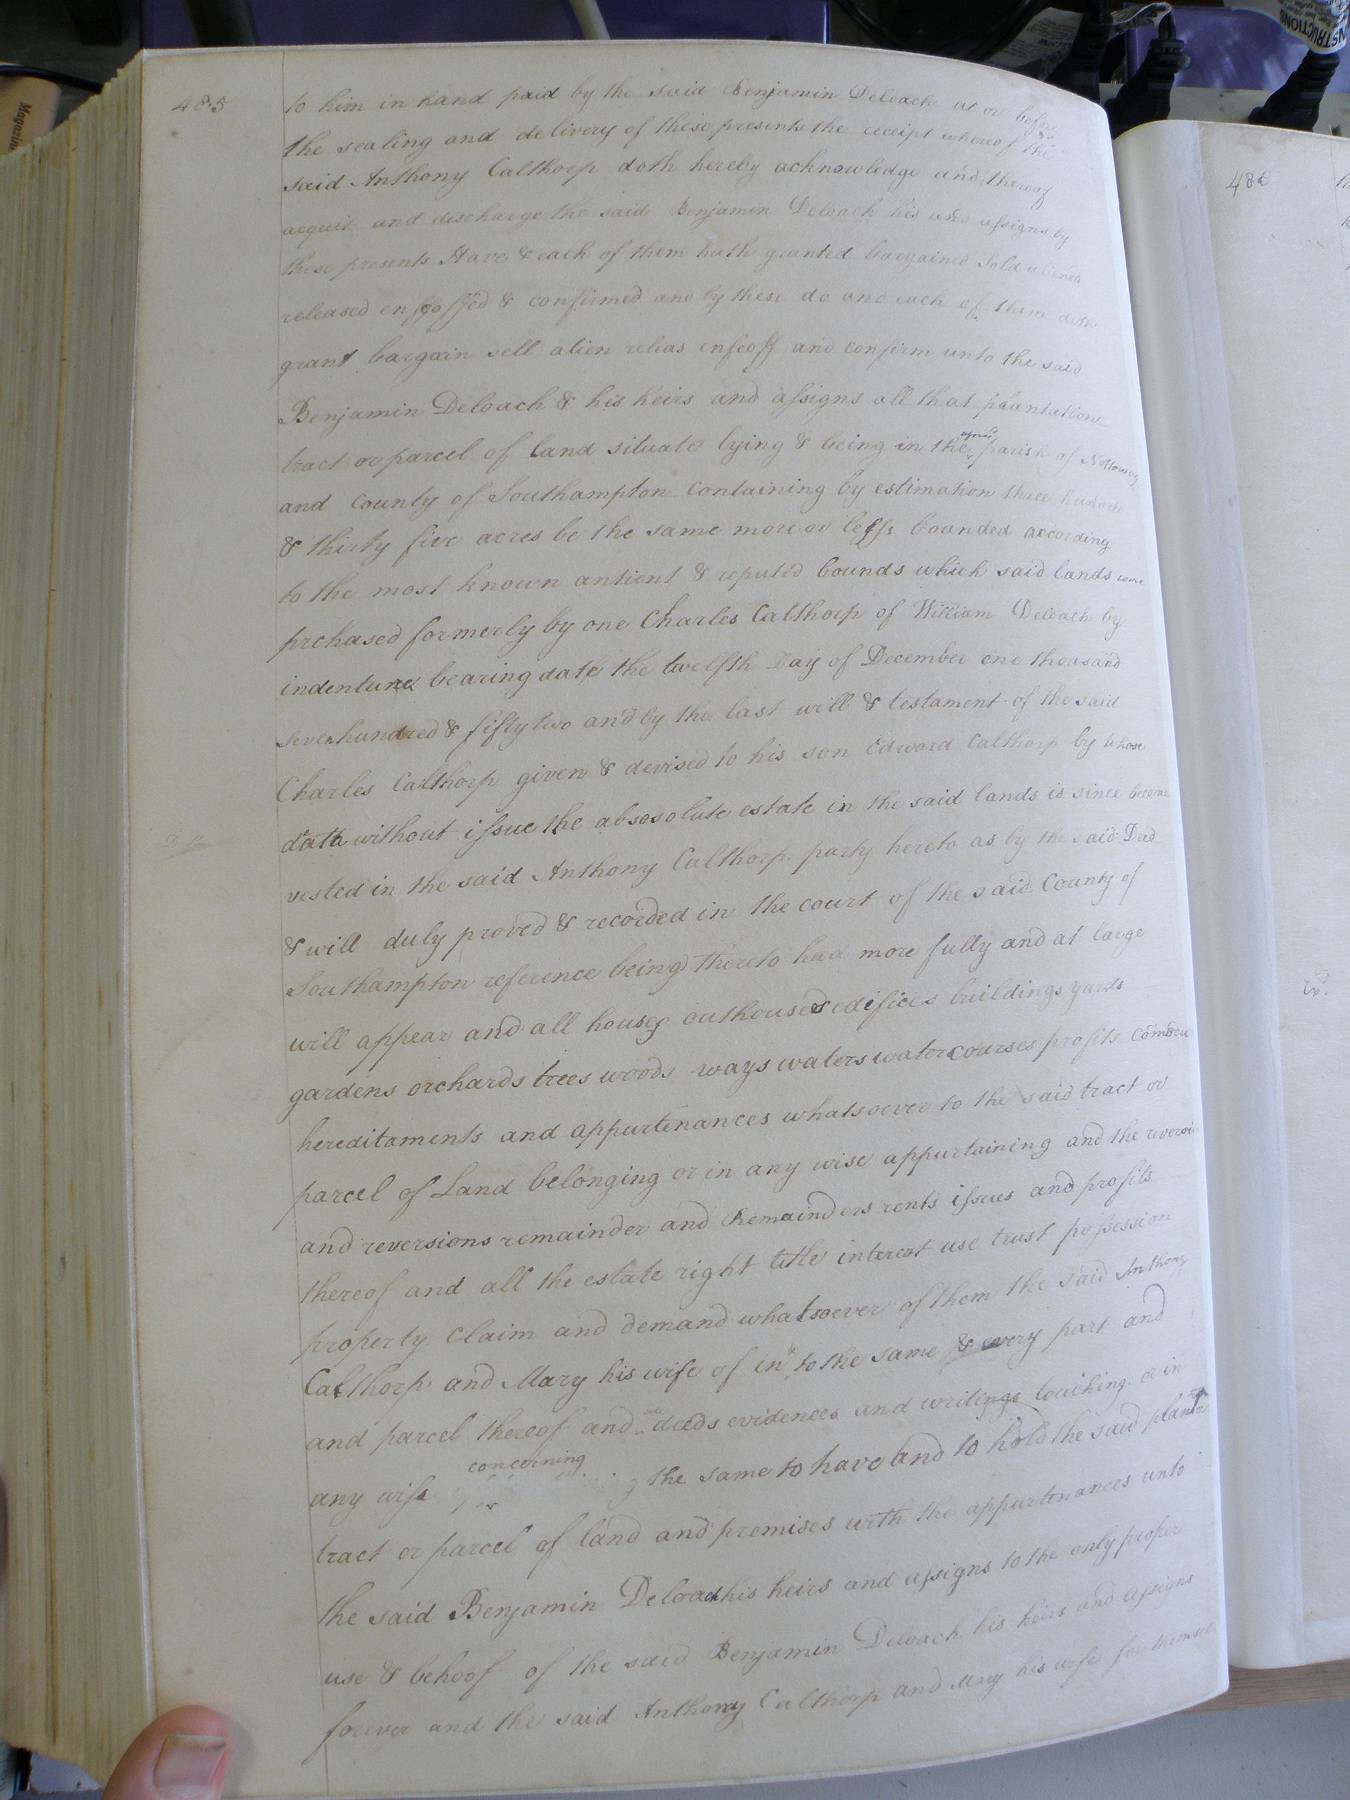 485
to him in hand paid by the said Benjamin Deloach at or before
the sealing and delivery of these presents the receipt whereof the
said Anthony Calthorp doth hereby acknowledge and thereof
acquit and discharge the said Benjamin Deloach his and assigns by
these presents Have & each of them hath granted bargained Sold aliened
released enfeoffed & confirmed and by these do and each of them doth
grant bargain sell alien releas enfeoff and confirm unto the said
Benjamin Deloach & his heirs and assigns all that plantation
tract or parcel of land situate lying & being in the parish of Nottoway
and county of Southampton containing by estimation three hundred
& thirty five acres be the same more or less bounded according
to the most known antient & reputed bounds which said lands were
prchased formerly by one Charles Calthorp of William Deloach by
indenture bearing date the twelfth Day of December one thousand
seven hundred & fifty two and by the last will & testament of the said
Charles Calthorp given & devised to his son Edward Calthorp by whose
death without issue the absosolute estate in the said lands is since become
vested in the said Anthony Calthorp party hereto as by the said Deed
& will duly proved & recorded in the court of the said County of
Southampton reference being thereto had more fully and at large
will appear and all houses outhouses edifices buildings yards
gardens orchards trees woods ways waters watercourses profits
hereditaments and appurtenances whatsoever to the said tract or
parcel of Land belonging or in any wise appurtaining and the
and reversions remainder and Remainders rents issues and profits
thereof and all the estate right title interest use trust possession
property claim and demand whatsoever of them the said Anthony
Calthorp and Mary his wife of in to the same & every part and
and parcel thereof and deeds evidences and writings touching or in
any wise concerning the same to have and to hold the said
tract or parcel of land and premises with the appurtenances unto
the said Benjamin Deloach his heirs and assigns to the only proper
use & behoof of the said Benjamin Deloach his heirs and assigns
forever and the said Anthony Calthorp and Mary his wife for
486